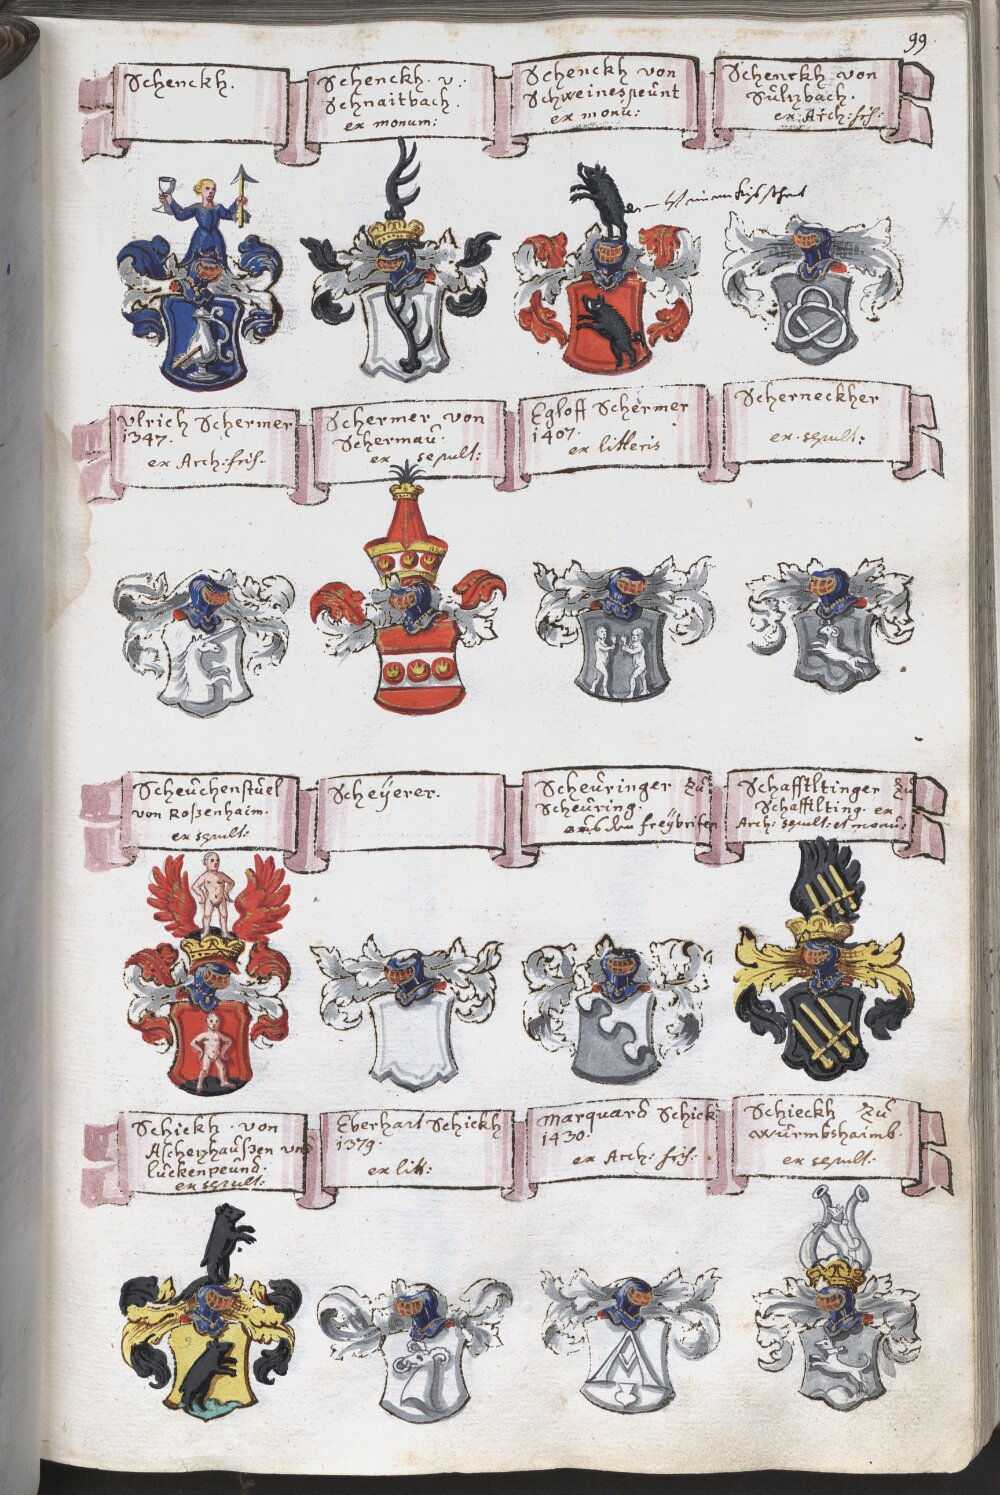 99
Schenckh.
Schenckh. v.
Schnaitbach.
ex monum:
Schenckh von
Schweinespeünt
ex monu:
Schenckh von
Sülzbach.
ex Arch: fris:
Ulrich Schermer
1347.
ex Arch: fris.
Schermer von
Schermaü.
ex sepult:
Egloff Schermer
1407.
ex litteris
Scherneckher
ex sepult:
Scheüchenstüel
von Roßenhaim.
ex sepult:
Scheÿerer.
Scheüringer zü
Scheüring.
freÿbrifen
Schafftltinger zu
Schafftlting. ex
Arch: sepult: et monu:
Schiekh von
Aschenhaüßen und
lückenpeund.
ex sepult:
Eberhart Schickh
1379.
ex litt:
Marquard Schick
1430.
ex Arch: fris:
Schieckh zü
Würmbshaimb.
ex sepult: